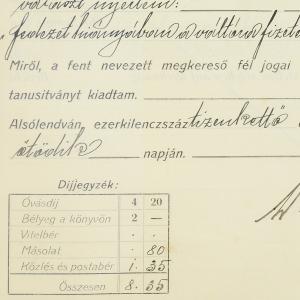 választ nyertem:
fedezet hiányában a váltóra fizeté
Miről, a fent nevezett megkereső fél jogai
tanusitványt kiadtam.
Alsólendván, ezerkilenczszáztizenkettő
ötödik napján.
Díjjegyzék:
Óvásdíj 4 20
Bélyeg a könyvön 2 —
Vitelbér . .
Másolat . 80
Közlés és postabér 1. 35
Összesen 8. 35